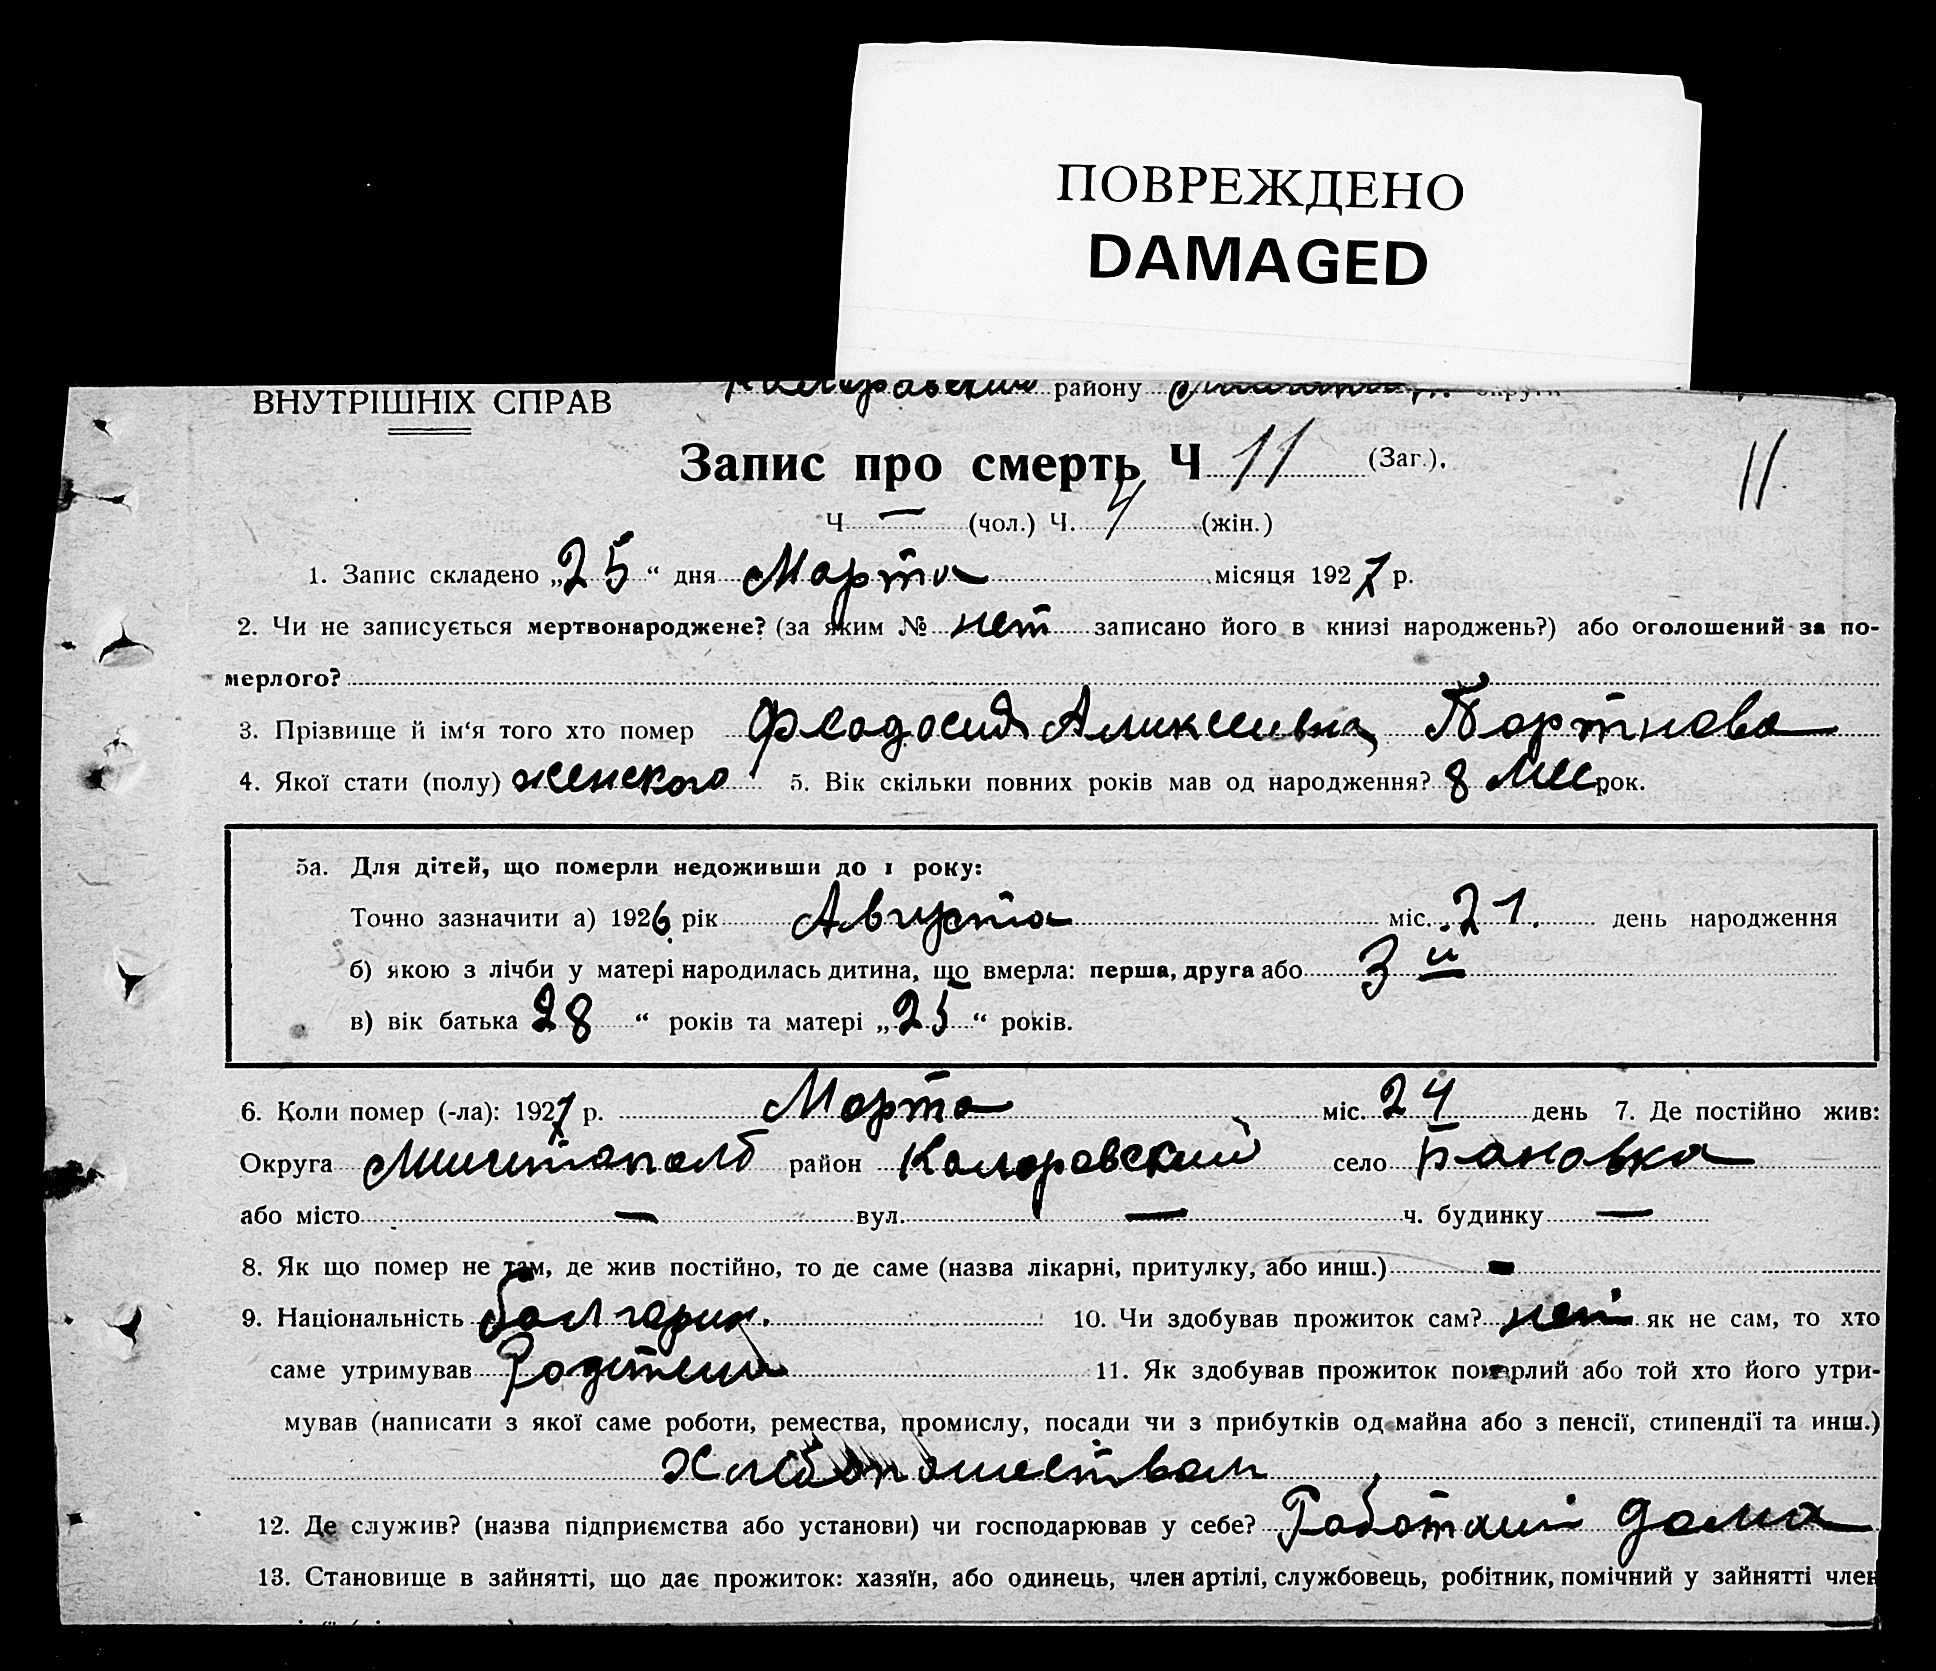 ПОВРЕЖДЕНО
DAMAGED
ВНУТРІШНІХ СПРАВ району
Запис про смерть Ч 11 (Заг.). 11
Ч — (чол.) Ч. 4 (жін.)
1. Запис складено „25“ дня Марта місяця 1927 р.
2. Чи не записується мертвонароджене? (за яким № нет записано його в книзі народжень?) або оголошений за по-
мерлого?
3. Прізвище й ім‘я того хто помер Феодосия Алексеевна Портнова
4. Якої стати (полу) женского 5. Вік скільки повних років мав од народження? 8 мес рок.
5а. Для дітей, що померли недоживши до 1 року:
Точно зазначити а) 1926 рік Августа міс. 21. день народження
б) якою з лічби у матері народилась дитина, що вмерла: перша, друга або 3 й
в) вік батька 28 “ років та матері „25“ років.
6. Коли помер (-ла): 1927 р. Марта міс. 24 день 7. Де постійно жив:
Округа район Коларовский село Бановка
або місто — вул. — ч. будинку —
8. Як що помер не там, де жив постійно, то де саме (назва лікарні, притулку, або инш.) -
9. Національність болгарин. 10. Чи здобував прожиток сам? нет як не сам, то хто
саме утримував 11. Як здобував прожиток померлий або той хто його утри-
мував (написати з якої саме роботи, ремества, промислу, посади чи з прибутків од майна або з пенсії, стипендії та инш.)
12. Де служив? (назва підприємства або установи) чи господарював у себе? Работал дома
13. Становище в зайнятті, що дає прожиток: хазяїн, або одинець, член артілі, службовець, робітник, помічний у зайнятті член